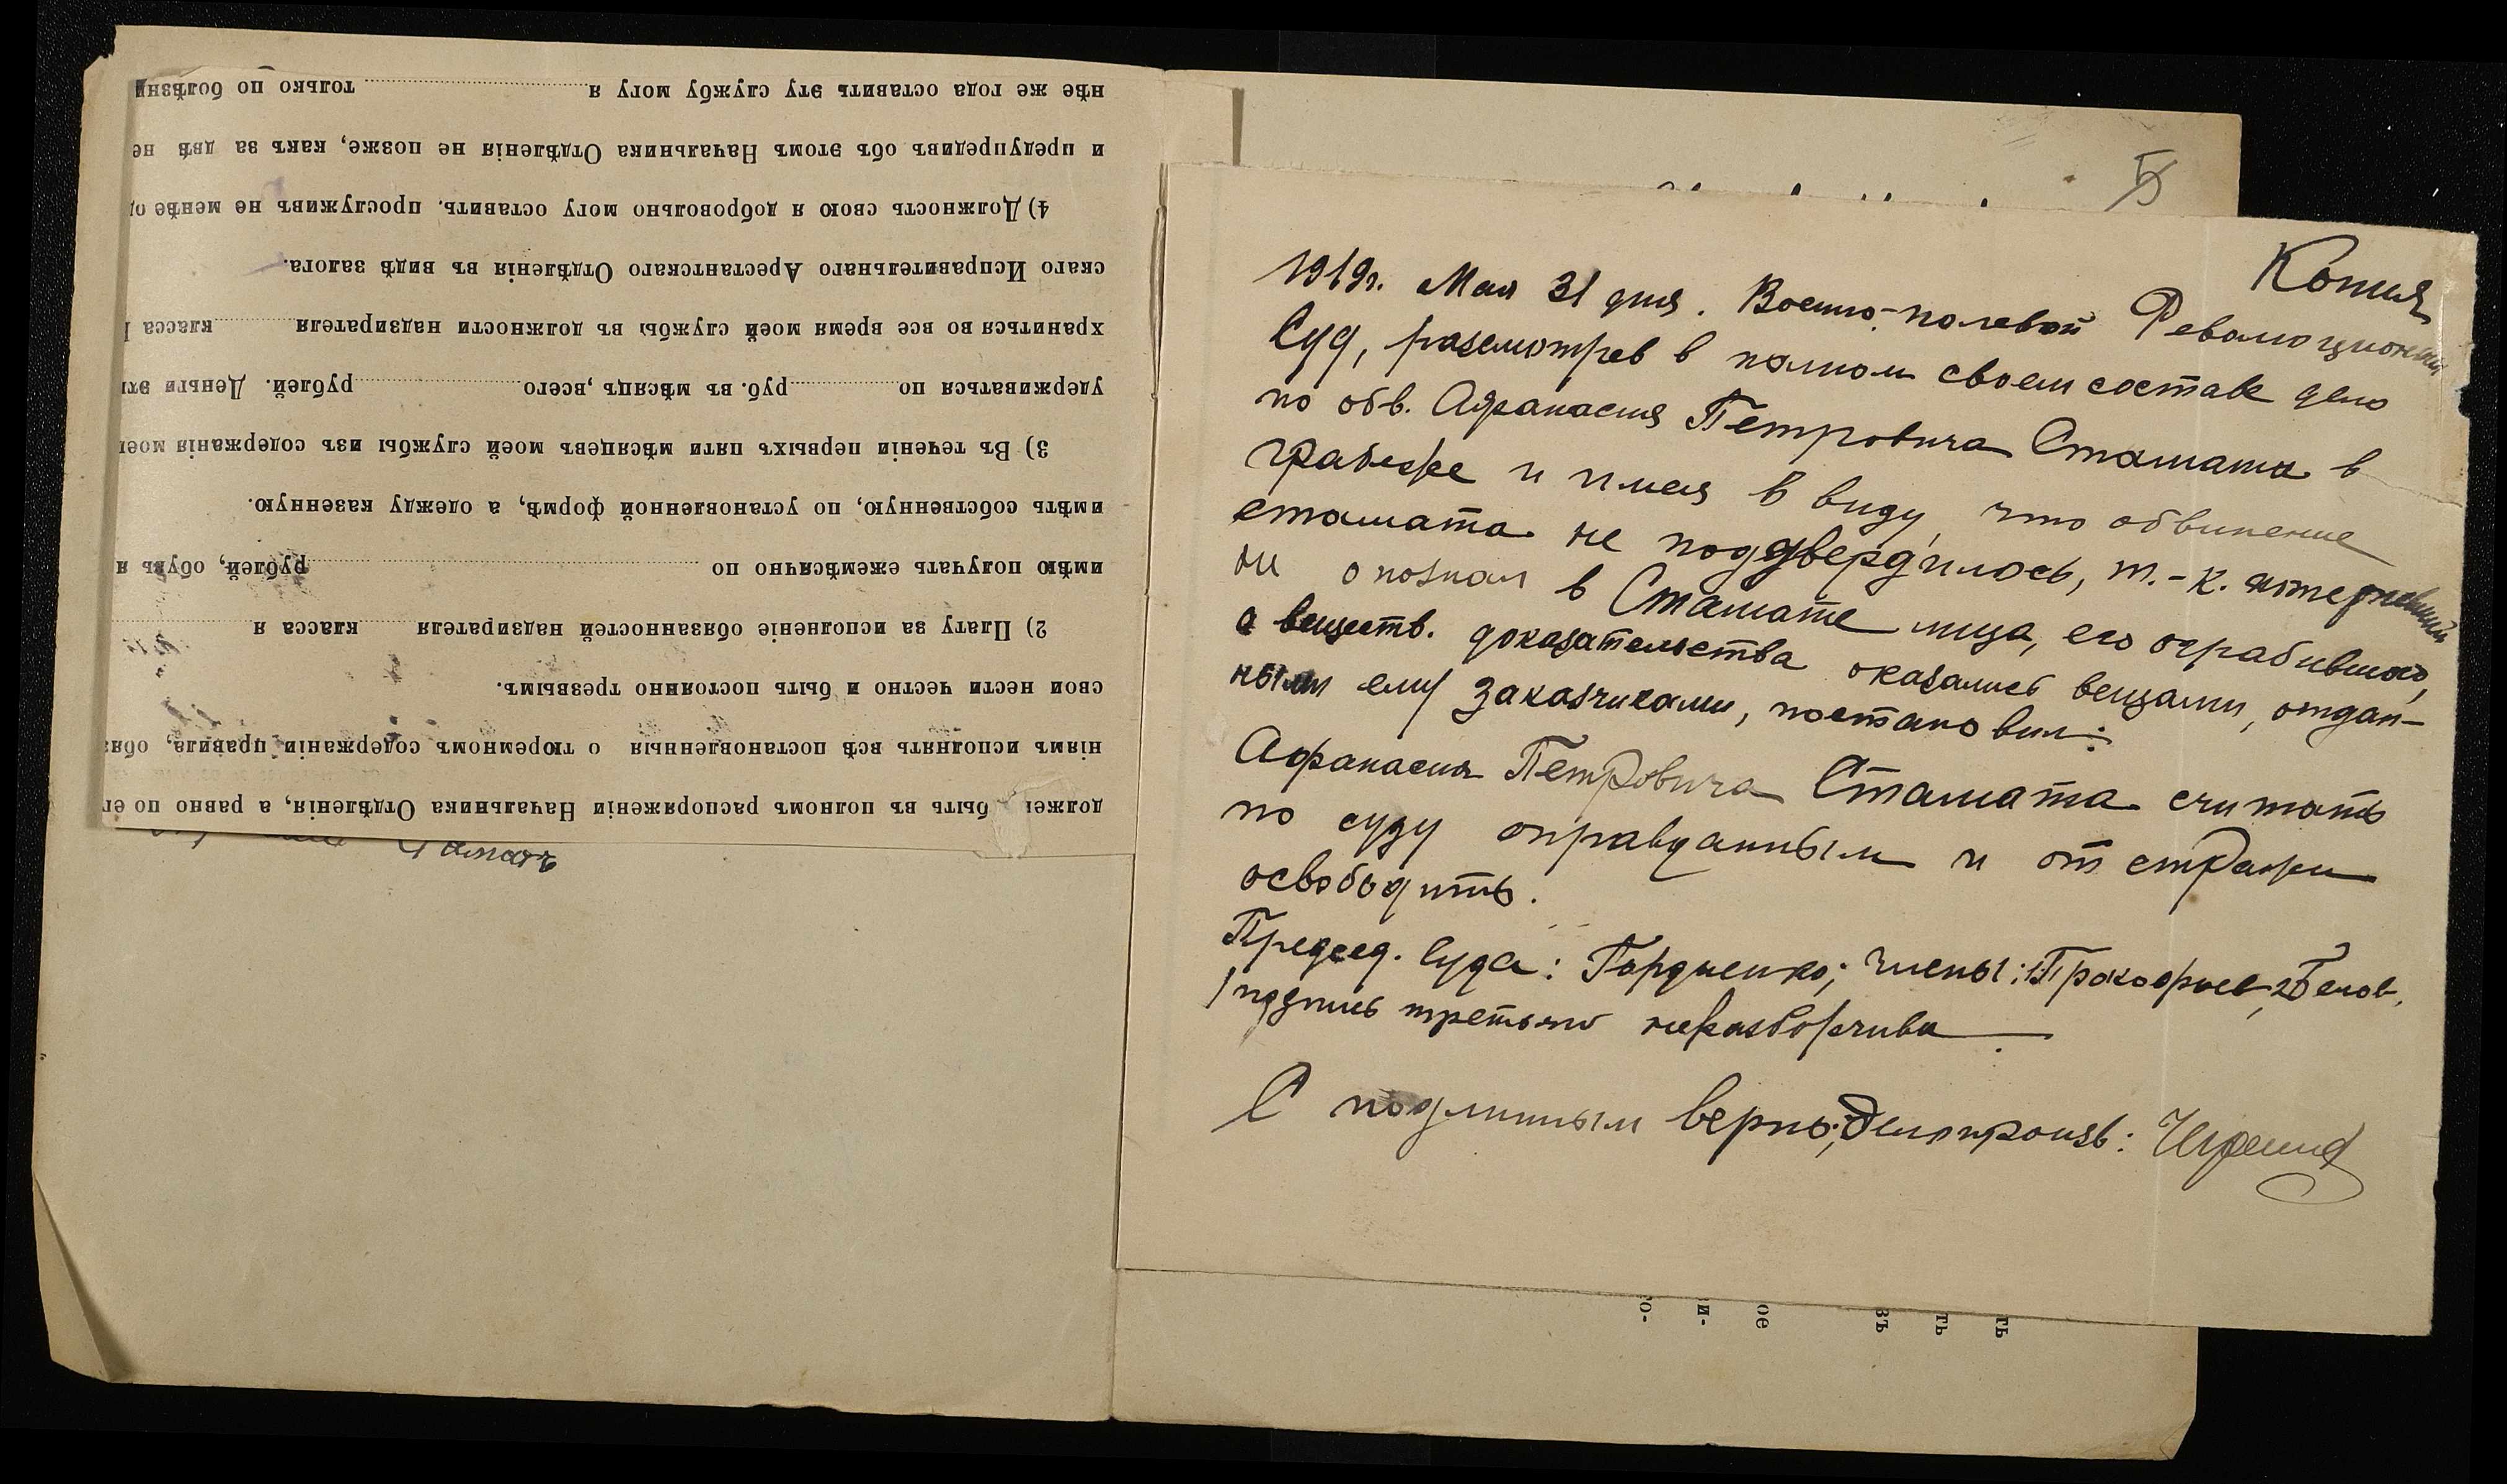 должен быть въ полномъ распоряженіи Начальника Отдѣленія, а равно по ег
ніямъ исполнять всѣ постановленныя о тюремномъ содержаніи правила, обяз
свои нести честно и быть постоянно трезвымъ.
2) Плату за исполненіе обязанностей надзирателя класса я
имѣю получать ежемѣсячно по рублей, обувь я
имѣть собственную, по установленной формѣ, а одежду казенную.
3) Въ теченіи первыхъ пяти мѣсяцевъ моей службы изъ содержанія моег
удерживаться по руб. въ мѣсяцъ, всего рублей. Деньги эти
храниться во все время моей службы въ должности надзирателя класса
скаго Исправительнаго Арестантскаго Отдѣленія въ видѣ залога.
4) Должность свою я добровольно могу оставить, прослуживъ не менѣе од
и предупредивъ объ этомъ Начальника Отдѣленія не позже, какъ за двѣ не
нѣе же года оставить эту службу могу я только по болѣзни
5
Копия
1919г. Мая 31 дня. Военно-полевой Революционный
Суд, разсмотрев в полном своем составе дело
по обв. Афанасия Петровича Стамата в
грабеже и имея в виду, что обвинение
стамата не поддвердилось, т.-к. потерпевший
не опознал в Стамате лица, его ограбившаго,
а веществ. доказательства оказались вещами, отдан-
ными ему заказчиками, постановил:
Афанасия Петровича Стамата считать
по суду оправданным и от стражи
освободить.
Председ. Суда: Гордиенко; члены: 1) Прокофьев, 2) Белов,
/подпись третьяго неразборчива
С подлинным верно; Делопроизв:
го-
зи-
ое
въ
ть
ть